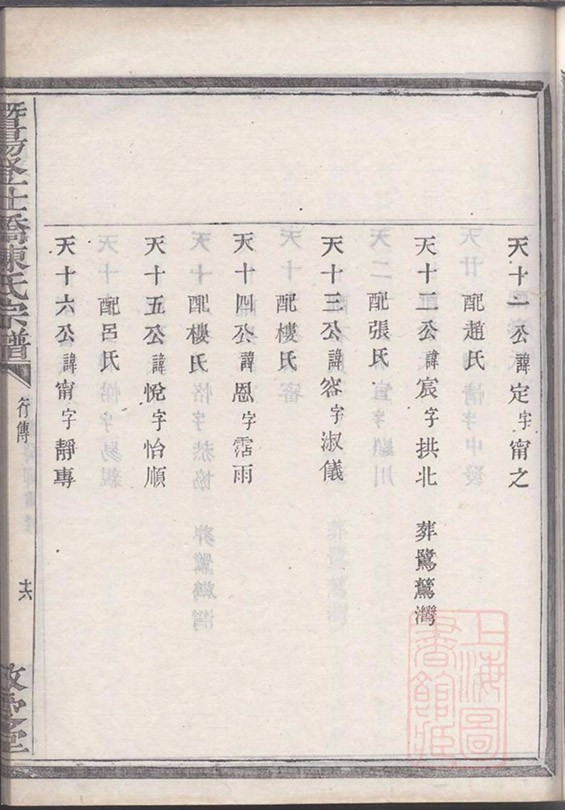 天十一公諱定字甯之
配趙氏
天十二公諱宸字拱北 葬鷺鷥灣
配張氏
天十三公諱容字淑儀
配樓氏
天十四公諱恩字霑雨
配樓氏
天十五公諱悅字怡順
配呂氏
天十六公諱甯字靜專
暨陽登仕橋陳氏宗譜
行傳
十六
上海圖書館藏